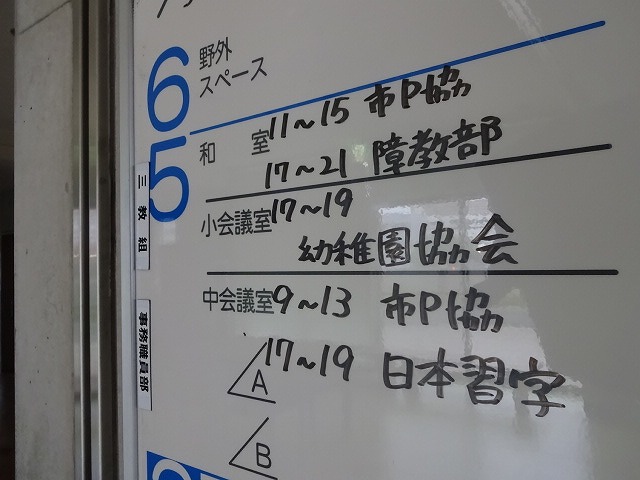 6 野外
スペース
5 和室 11~15 市P協
17~21 障教部
小会議室 17~19
幼稚園協会
中会議室 9~13 市P協
A 17~19 日本習字
B
三教組
事務職員部